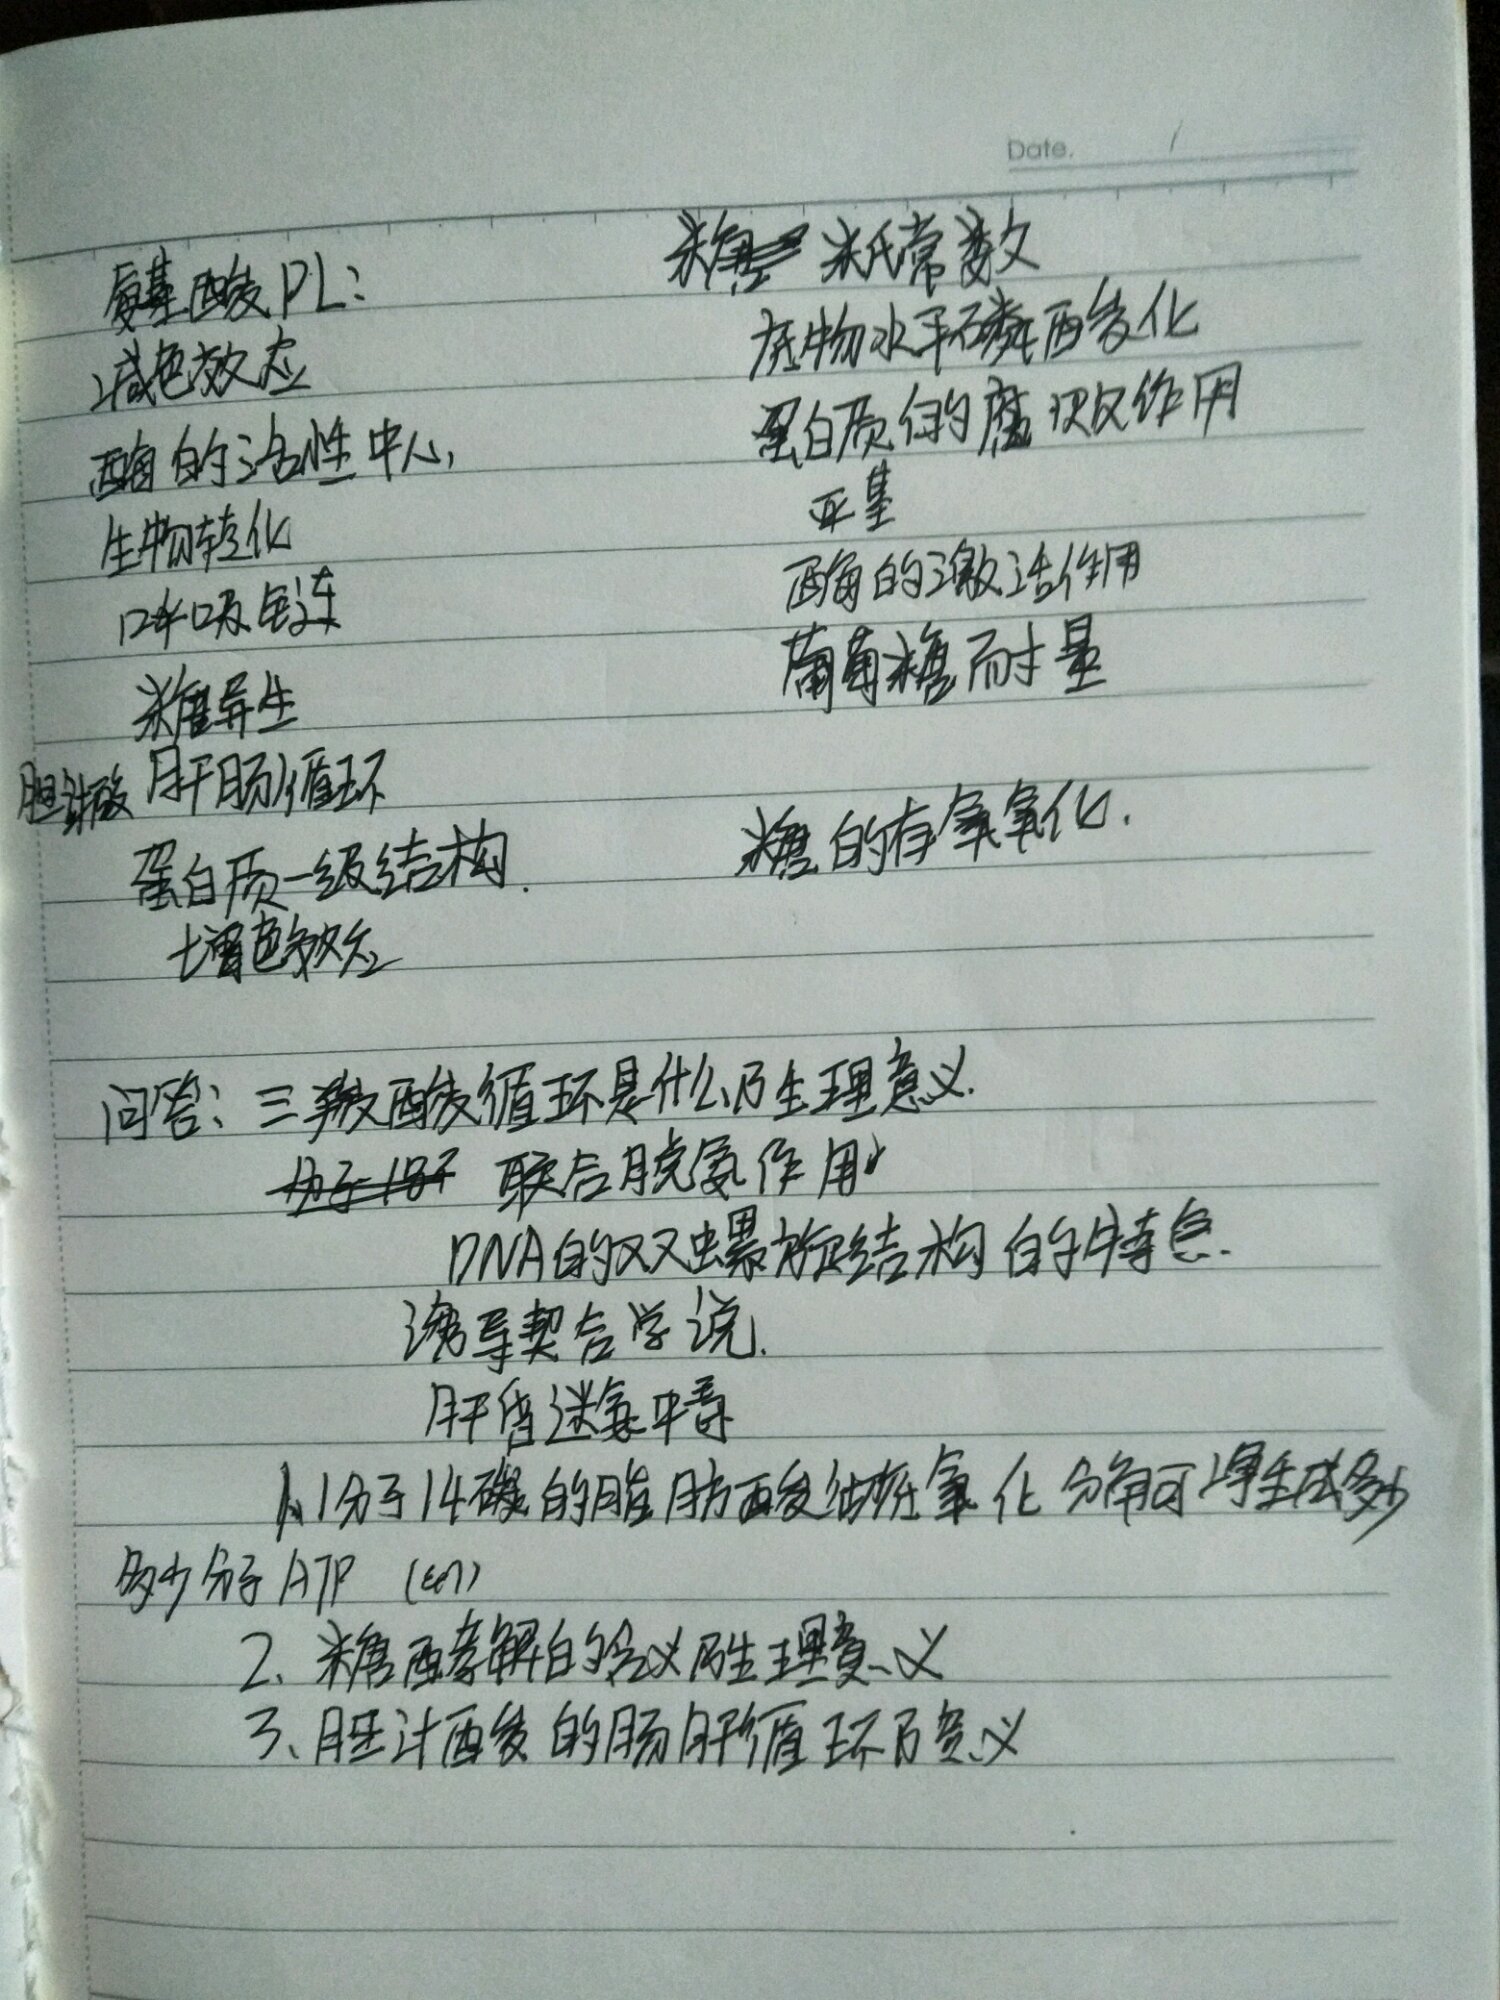 Date.
氨基酸PL：
减色效应
酶的活性中心,
生物转化
呼吸链
糖异生
胆汁酸 肝肠循环
蛋白质一级结构.
增色效应
糖 米氏常数
底物水平磷酸化
蛋白质的腐败作用
亚基
酶的激活作用
葡萄糖耐量
糖的有氧氧化.
问答：三羧酸循环是什么及生理意义.
联合脱氨作用
DNA的双螺旋结构的特点.
诱导契合学说.
肝昏迷氨中毒
1、1分子14碳的脂肪酸彻底氧化分解可净生成多少
多少分子ATP
2、糖酵解的含义及生理意义
3、胆汁酸的肠肝循环及意义